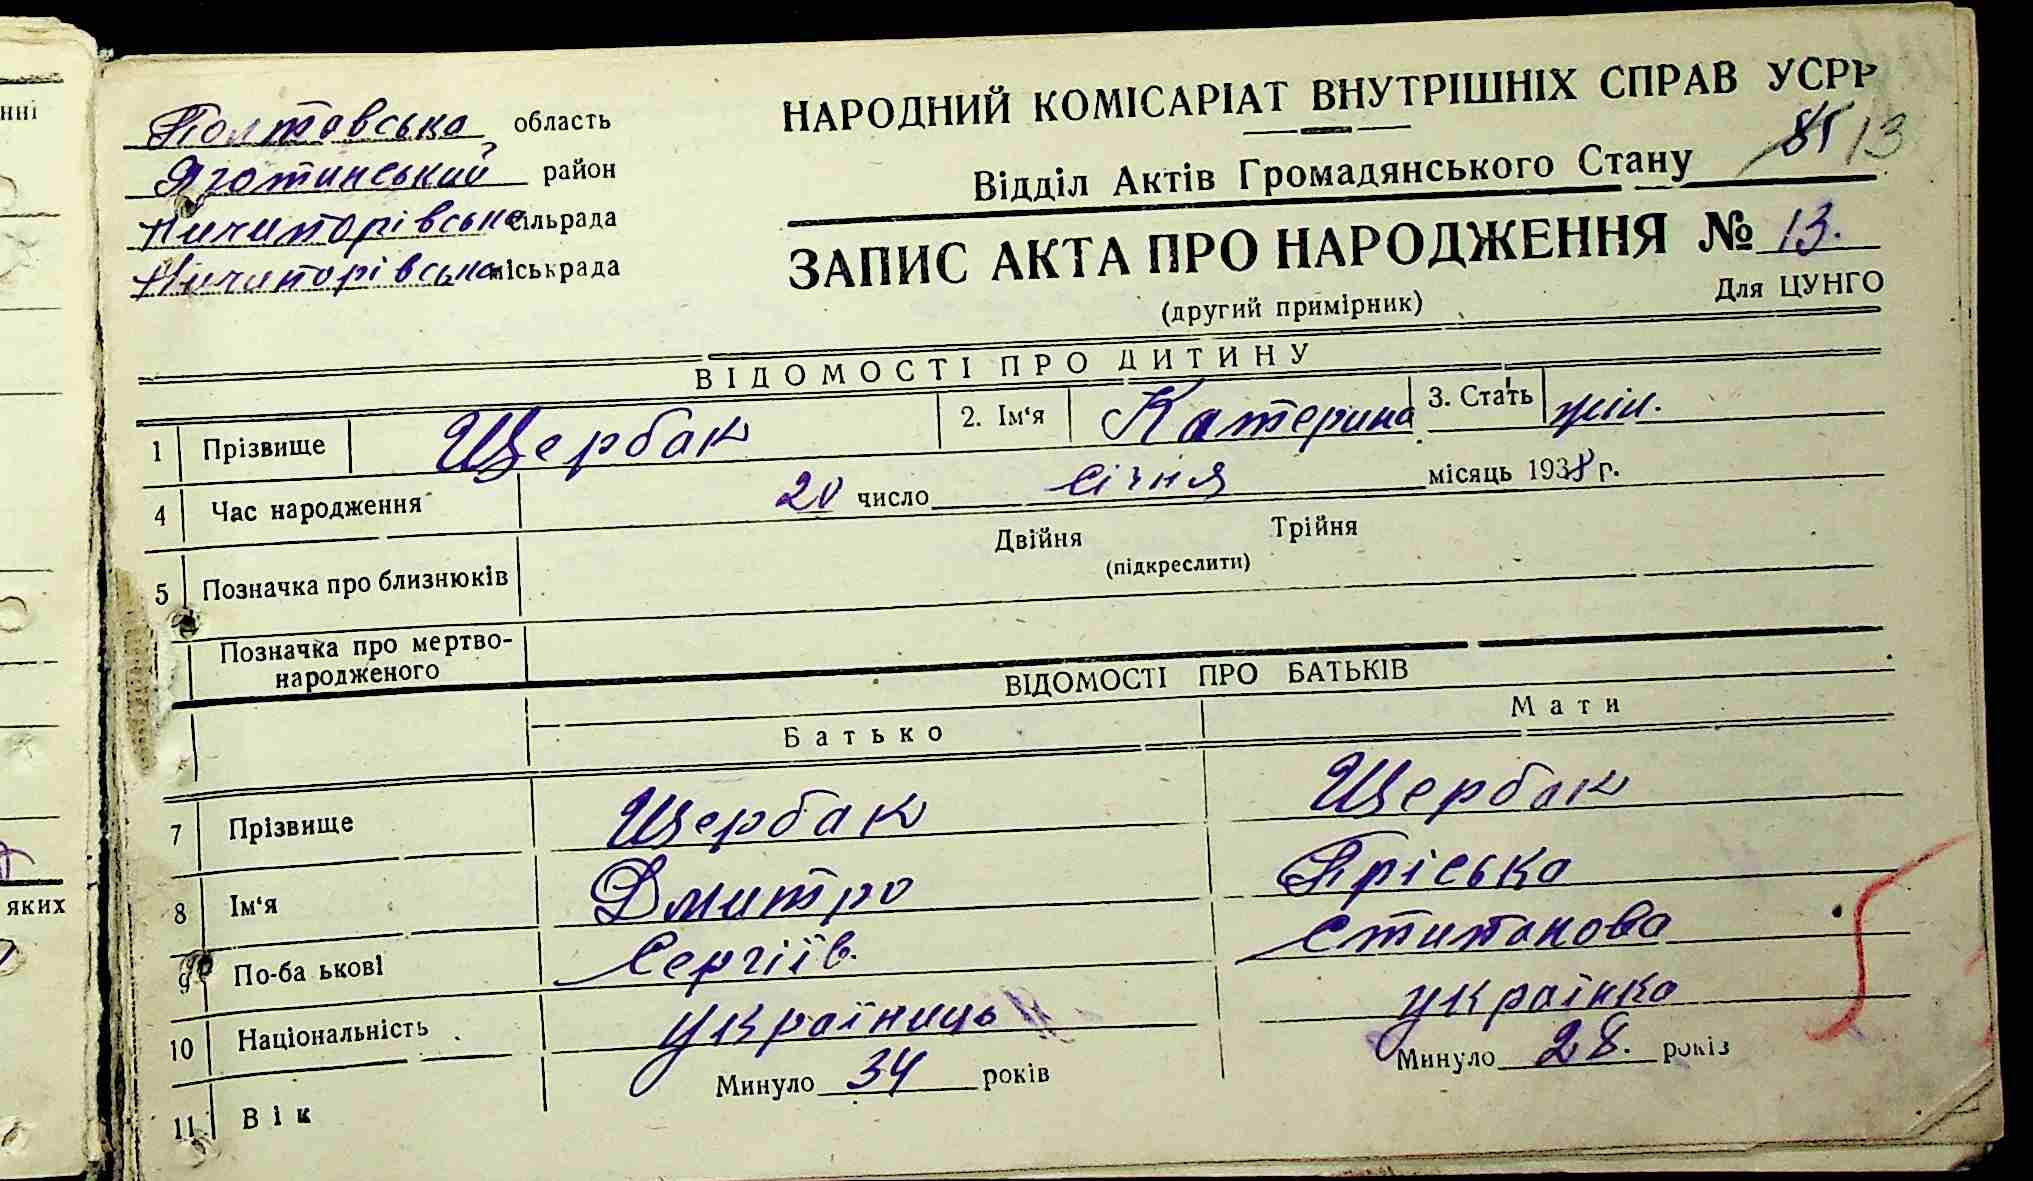 нні
яких
Полтавська область
Яготинський район
Ничипорівська сільрада
Ничипорівська міськрада
НАРОДНИЙ КОМІСАРІАТ ВНУТРІШНІХ СПРАВ УСРР
Відділ Актів Громадянського Стану 13
ЗАПИС АКТА ПРО НАРОДЖЕННЯ № 13.
(другий примірник) Для ЦУНГО
ВІДОМОСТІ ПРО ДИТИНУ
1 Прізвище Щербак 2. Ім‘я Катерина 3. Стать жін.
4 Час народження 20 число січня місяць 1938 г.
Двійня Трійня
5 Позначка про близнюків (підкреслити)
Позначка про мертво-
народженого
ВІДОМОСТІ ПРО БАТЬКІВ
Батько Мати
7 Прізвище Щербак Щербак
8 Ім‘я Дмитро Пріська
9 По-ба ькові Сергіїв. Стипанова
10 Національність україниць українка
11 Вік Минуло 34 років Минуло 28. років